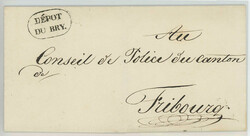 DÉPOT
DU BRY.
Au
Conseil de Police du canton
de
Fribourg.